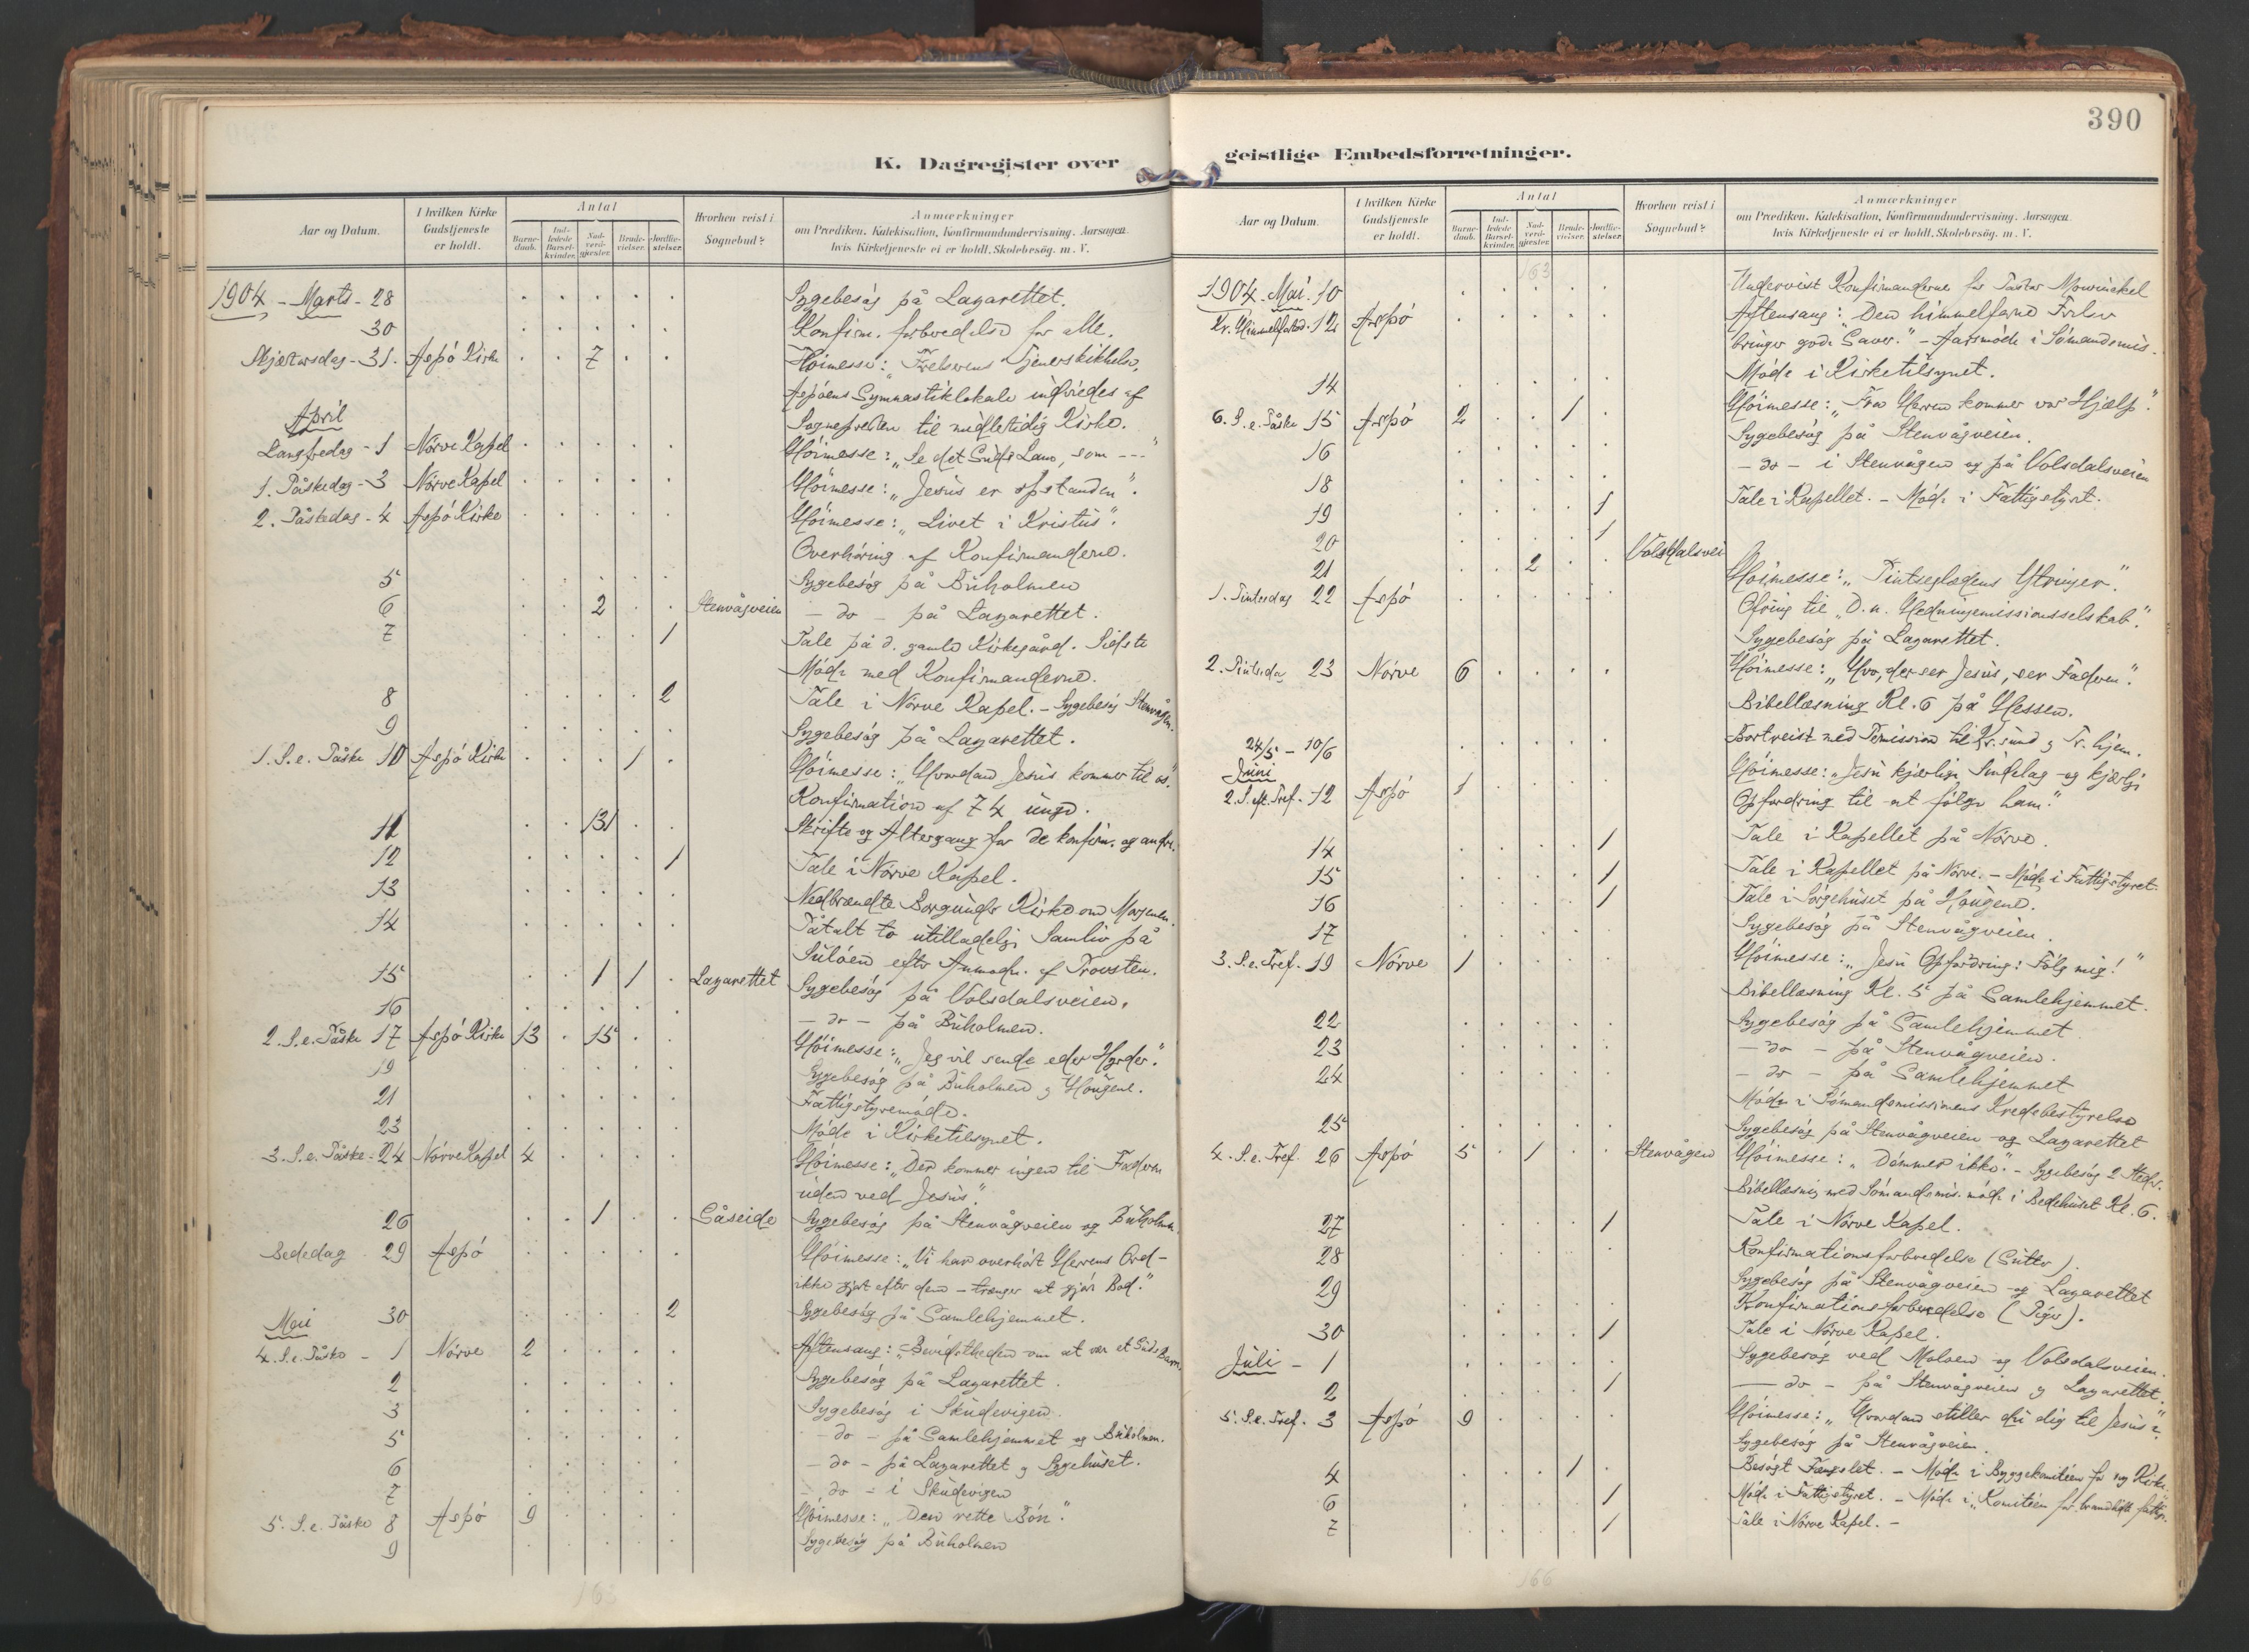 390
K. Dagregister over
Aar og Datum.
I hvilken Kirke Gudstjeneste er holdt.
Antal
Barnedaab.
Indledede Barselkvinder.
Nadverdgjæster.
Brudevielser.
Jordfæstelser.
Hvorhen reist i Sognebud?
Anmærkninger
om Prædiken. Katekisation, Konfirmandundervisning. Aarsagen
hvis Kirketjeneste ei er holdt. Skolebesøg. m. V.
1904 - Marts - 28 . . . . . Sygebesög på Lazarettet.
30 . . . . . Konfirm. forberedelse for alle.
Skjærtorsdag - 31. Aspö Kirke . . 7 . . Höimesse: "Frelserens Tjenerskikkelse,
Aspöens Gymnastiklokale indviedes af
April
Sognepresten til midlertidig Kirke.
Langfredag - 1 Nörve Kapel . . . . . Höimesse: "Se det Guds Lam, som ---"
1. Påskedag - 3 Nörve Kapel . . . . . Höimesse: "Jesus er opstanden".
2. Påskedag - 4 Aspö Kirke . . . . . Höimesse: "Livet i Kristus".
Overhöring af Konfirmanderne.
5 . . . . . Sygebesög på Buholmen
6 . . 2 . . Stenvågveien - do - på Lazarettet.
7 . . . . 1 Tale på d. gamle Kirkegård. Sidste
Möde med Konfirmanderne.
8 . . . . 2 Tale i Nörve Kapel. - Sygebesög Stenvågen.
9 . . . . . Sygebesög på Lazarettet.
1. S. e. Påske 10 Aspö Kirke . . . 1 . Höimesse: "Hvordan Jesus kommer til os".
Konfirmation af 74 unge.
11 . . 131 . . Skrifte og Altergang for de konfirm. og andre.
12 . . . . 1 Tale i Nörve Kapel.
13 . . . . . Nedbrændte Borgunds Kirke om Morgenen.
14 . . . . . Påtalt to utilladelig Samliv på
Sulöen efter Anmodn. af Provsten.
15 . . 1 1 . Lazarettet Sygebesög på Volsdalsveien.
16 . . . . . - do - på Buholmen.
2. S. e. Påske 17 Aspö Kirke 13 . 15 . . Höimesse: "Jeg vil sende eder Hyrder".
19 . . . . . Sygebesög på Buholmen og Haugene.
21 . . . . . Fattigstyremöde.
23 . . . . . Möde i Kirketilsynet.
3. S. e. Påske - 24 Nörve Kapel 4 . . . . Höimesse: "Der kommer ingen til Faderen
uden ved Jesus".
26 . . 1 . . Gåseide Sygebesög på Stenvågveien og Buholmen.
Bededag 29 Aspö . . . . . Höimesse: "Vi har overhört Herrens Ord -
ikke gjort efter dem - trænger at gjöre Bod."
30 . . . . 2 Sygebesög på Gamlehjemmet.
Mai
4. S. e. Påske - 1 Nörve 2 . . . . Aftensang: "Bevidstheden om at være et Guds Barn
2 . . . . . Sygebesög på Lazarettet.
3 . . . . . Sygebesög i Skudevigen.
5 . . . . . - do - på Gamlehjemmet og Buholmen.
6 . . . . . - do - på Lazarettet og Sygehuset.
7 . . . . . - do - i Skudevigen
5. S. e. Påske 8 Aspö 9 . . . . Höimesse: "Den rette Bön".
9 . . . . . Sygebesög på Buholmen
163
geistlige Embedsforretninger.
Aar og Datum.
I hvilken Kirke Gudstjeneste er holdt.
Antal
Barnedaab.
Indledede Barselkvinder.
Nadverdgjæster.
Brudevielser.
Jordfæstelser.
Hvorhen reist i Sognebud?
Anmærkninger
om Prædiken. Katekisation, Konfirmandundervisning. Aarsagen
hvis Kirketjeneste ei er holdt. Skolebesøg. m. V.
163
1904. Mai. 10 . . . . . Undervist Konfirmanderne for Pastor
Kr. Himmelfartsd. 12 Aspö . . . . . Aftensang: "Den himmelfarne Frelser
bringer gode Gaver." - Aarsmöde i Sömandsmis.
14 . . . . . Möde i Kirketilsynet.
6. S. e. Påske 15 Aspö 2 . . 1 . Höimesse: "Fra Herren kommer vor Hjælp".
16 . . . . . Sygebesög på Stenvågveien.
18 . . . . . - do - i Stenvågen og på Volsdalsveien
19 . . . . 1 Tale i Kapellet. - Möde i Fattigstyret.
20 . . . . 1
21 . . 2 . . Volsdalsvei
1. Pintsedag 22 Aspö . . . . . Höimesse: "Pintseglædens Ytringer".
Ofring til "D. n. Hedningemissionsselskab".
Sygebesög på Lazarettet.
2. Pintsedag 23 Nörve 6 . . . . Höimesse: "Hvo, der ser Jesus, ser Faderen".
Bibellæsning Kl. 6 på Hessen.
24/5 - 10/6 . . . . . Bortreist med Permission til Kr.sund og Tr.hjem.
Juni
2. S. eft. Tref. - 12 Aspö 1 . . . . Höimesse: "Jesu kjærlige Sindelag og kjærlig
Opfordring til at fölge ham."
14 . . . . 1 Tale i Kapellet på Nörve.
15 . . . . 1 Tale i Kapellet på Nörve. - Möde i Fattigstyret.
16 . . . . 1 Tale i Sörgehuset på Haugene.
17 . . . . . Sygebesög på Stenvågveien.
3. S. e. Tref. - 19 Nörve 1 . . . . Höimesse: "Jesu Opfordring: Fölg mig!"
Bibellæsning Kl. 5 på Gamlehjemmet.
22 . . . . . Sygebesög på Gamlehjemmet
23 . . . . . - do - på Stenvågveien.
24 . . . . . - do - på Gamlehjemmet
Möde i Sömandsmissionens Kredsbestyrelse
25 . . . . . Sygebesög på Stenvågveien og Lazarettet
4. S. e. Tref. 26 Aspö 5 . 1 . . Stenvågen Höimesse: "Dömmer ikke". - Sygebesög 2 Steder.
Bibellæsning med Sömandsmis. möde i Bedehuset Kl. 6.
27 . . . . 1 Tale i Nörve Kapel.
28 . . . . . Konfirmationsforberedelse (Gutter).
29 . . . . . Sygebesög på Stenvågveien og Lazarettet
Konfirmationsforberedelse (Piger).
30 . . . . 1 Tale i Nörve Kapel.
Juli - 1 . . . . . Sygebesög ved Moloen og Volsdalsveien.
2 . . . . 1 - do - på Stenvågveien og Lazarettet.
5. S. e. Tref. 3 Aspö 9 . . . . Höimesse: "Hvordan stiller du dig til Jesus?"
Sygebesög på Stenvågveien.
4 . . . 1 . Besögt Fængslet. - Möde i Byggekomitéen for ny Kirke.
6 . . . . 1 Möde i Fattigstyret. - Möde i "Komitéen for brandlidte fattige".
7 . . . . 1 Tale i Nörve Kapel. -
166